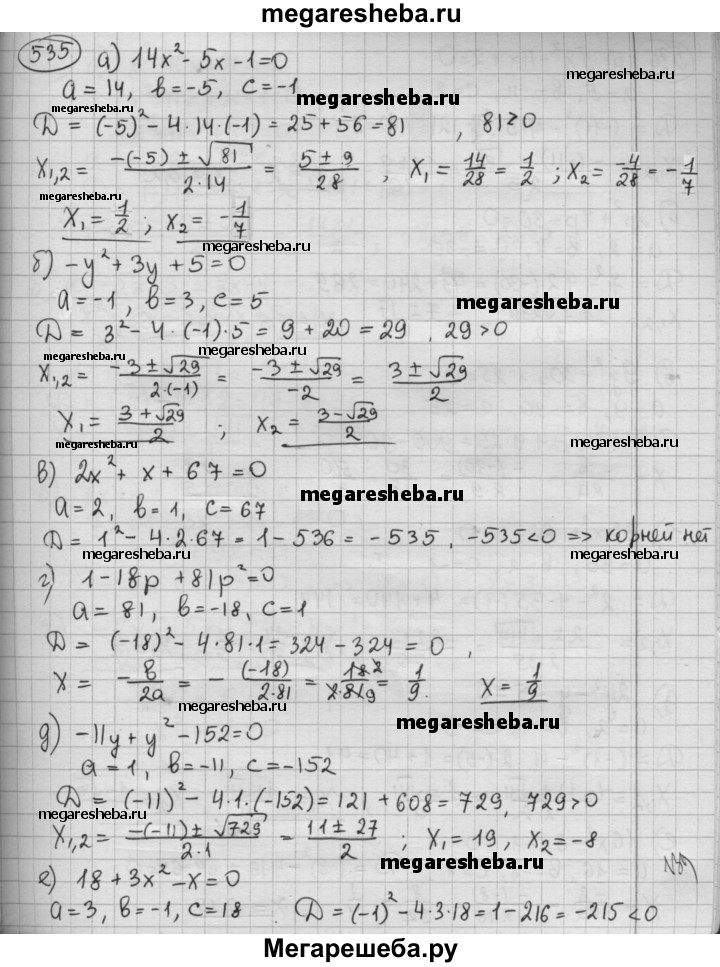 megaresheba.ru
535 а) 14x² - 5x - 1 = 0
a = 14, b = -5, c = -1
megaresheba.ru
D = (-5)² - 4·14·(-1) = 25 + 56 = 81, 81 > 0
megaresheba.ru
x₁,₂ = (-(-5) ± √81)/(2·14) = (5 ± 9)/28, x₁ = 14/28 = 1/2; x₂ = -4/28 = -1/7
megaresheba.ru
x₁ = 1/2; x₂ = -1/7
megaresheba.ru
б) -y² + 3y + 5 = 0
a = -1, b = 3, c = 5
megaresheba.ru
D = 3² - 4·(-1)·5 = 9 + 20 = 29, 29 > 0
megaresheba.ru megaresheba.ru
x₁,₂ = (-3 ± √29)/(2·(-1)) = (-3 ± √29)/(-2) = (3 ± √29)/2
x₁ = (3 + √29)/2; x₂ = (3 - √29)/2
megaresheba.ru megaresheba.ru
в) 2x² + x + 67 = 0
megaresheba.ru
a = 2, b = 1, c = 67
D = 1² - 4·2·67 = 1 - 536 = -535, -535 < 0 => корней нет
megaresheba.ru megaresheba.ru
г) 1 - 18p + 81p² = 0
a = 81, b = -18, c = 1
D = (-18)² - 4·81·1 = 324 - 324 = 0,
x = -b/2a = -(-18)/(2·81) = 18 2/(2·81 9) = 1/9. x = 1/9
megaresheba.ru
megaresheba.ru
д) -11y + y² - 152 = 0
a = 1, b = -11, c = -152
D = (-11)² - 4·1·(-152) = 121 + 608 = 729, 729 > 0
megaresheba.ru
x₁,₂ = (-(-11) ± √729)/(2·1) = (11 ± 27)/2; x₁ = 19, x₂ = -8
megaresheba.ru
е) 18 + 3x² - x = 0
a = 3, b = -1, c = 18 D = (-1)² - 4·3·18 = 1 - 216 = -215 < 0
Мегарешеба.ру